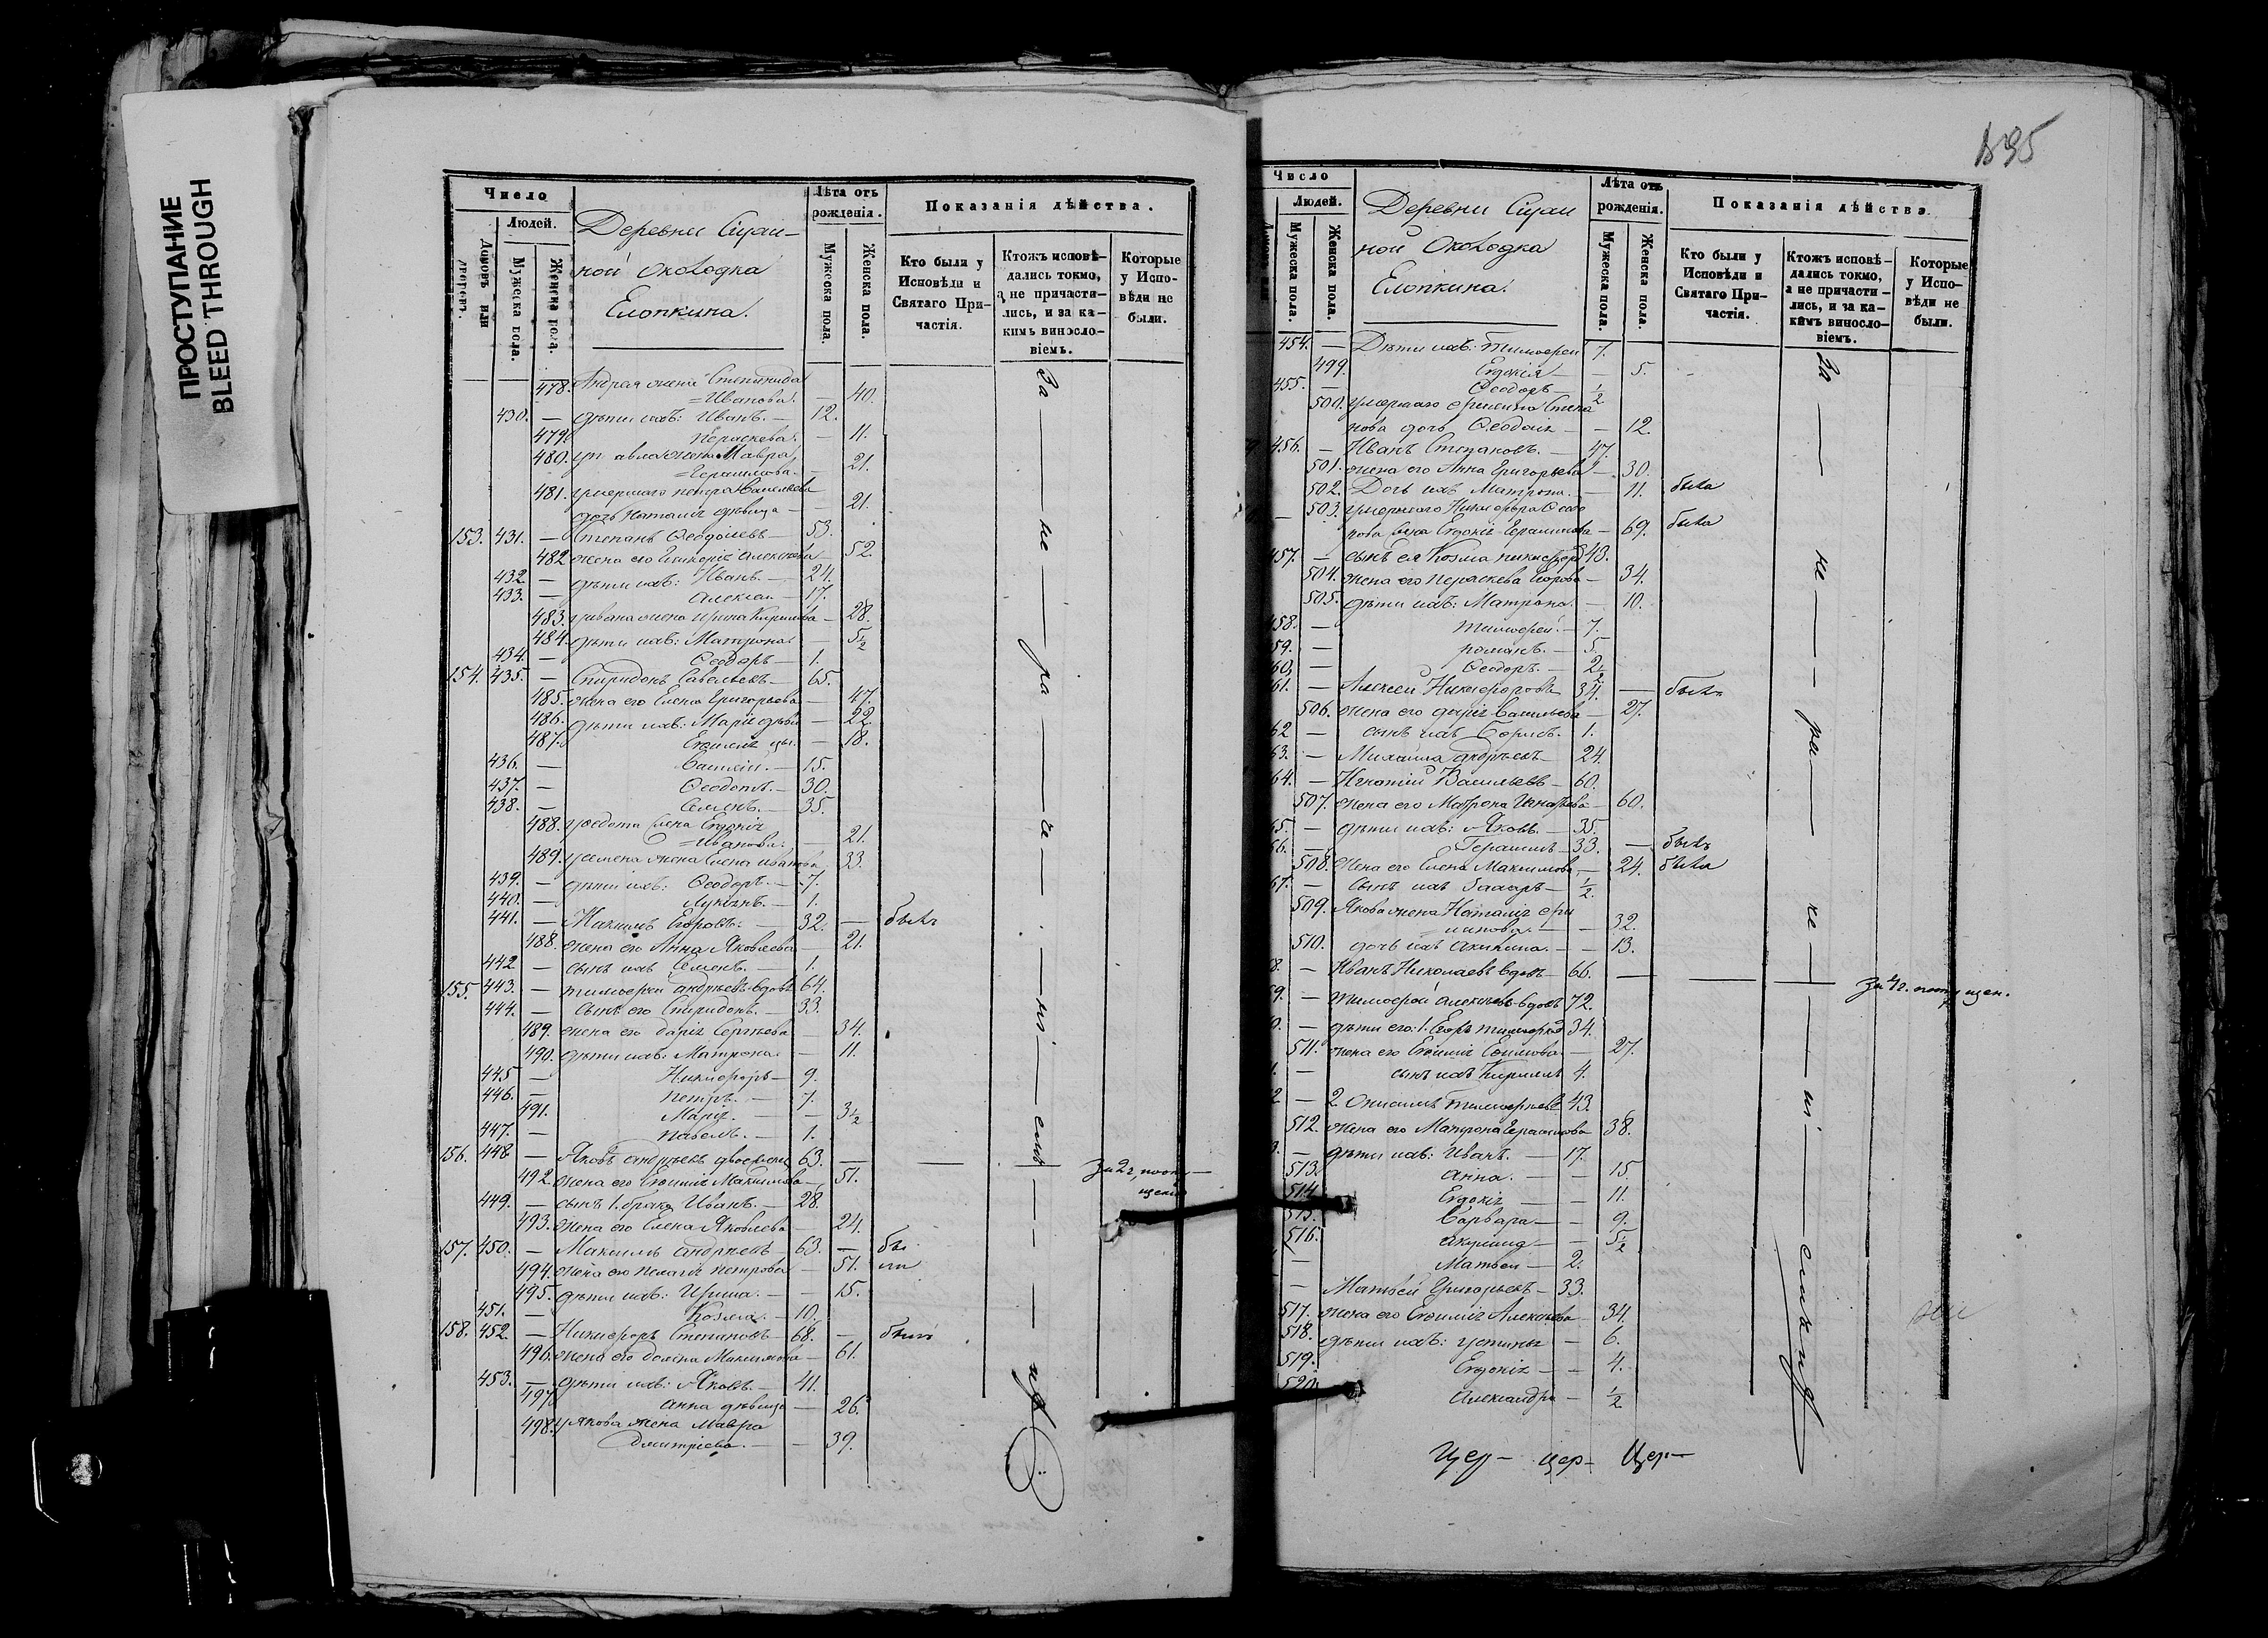 ПРОСТУПАНИЕ
BLEED THROUGH
Число
Людей.
Домовъ или
Мужеска пола.
Женска пола.
Деревни
ной околодка
Елопкина.
Лѣта отъ
рожденія.
Мужеска пола.
Женска пола.
Показанія дѣйства.
Кто были у
Исповѣди и
Святаго При-
частія.
Ктожъ исповѣ-
дались токмо,
а не причасти-
лись, и за ка-
кимъ винosло-
віемъ.
Которые
у Испо-
вѣди не
были.
478. Андрея жена Степанида
Иванова. — 40.
430. — дѣти ихъ: Иванъ. — 12.
479. Параскева. — 11.
480. жена Мавра
Герасимова. — 21.
481. умершаго Петра
дочь Наталія дѣвица — 21.
153. 431. — Степанъ Ѳеодосѣевъ — 53.
482 жена его Алексѣева — 52.
432. — дѣти ихъ: Иванъ. — 24.
433. — Алексѣй — 17.
483. у Ивана жена Ирина Кирилова — 28.
484. дѣти ихъ: Матрона — 5½
434. — Ѳеодоръ — 1.
154. 435. — Спиридонъ Савельевъ — 65.
485. жена его Елена Григорьева — 47.
486. дѣти ихъ: Марія дѣвиц — 22.
487. Евфимія — 18.
436. — Василій. — 15.
437. — Ѳеодотъ. — 30.
438. — Семенъ. — 35.
488. у Ѳедота жена Евдокія
Иванова. — 21.
489. у Семена жена Елена Иванова 33.
439. — дѣти ихъ: Ѳеодоръ. — 7.
440. — Лукіанъ. — 1.
441. — Максимъ Егоровъ. — 32. — былъ
488. жена его Анна Яковлева — 21.
442 — сынъ ихъ Семенъ. — 1.
155. 443. — Тимоѳей Андреевъ вдовъ 64.
444. — сынъ его Спиридонъ. — 33.
489. жена его Дарія Сергѣева — 34.
490. дѣти ихъ: Матрона. — 11.
445 — Никифоръ — 9.
446. — Петръ. — 7.
491. Марія. — 3½
447. — Павелъ. — 1.
156. 448 — Яковъ Андреевъ двоеженец 63. —
492. жена его Евфимія Максимова — 51.
449. — сынъ 1. брака Иванъ. — 28.
493. жена его Елена Яковлева — 24.
157. 450. — Максимъ Андреевъ — 63. — бы
494. жена его Пелагія Петрова — 51. ли
495. дѣти ихъ: Ирина. — 15.
451. — Козма. — 10.
158. 452. — Никифоръ Степановъ — 68. — были
496. жена его Максимова — 61.
453. — дѣти ихъ: Яковъ. — 41.
497. Анна дѣвица — 26.
498. у Якова жена Мавра
Дмитріева. — 39.
За — не — ра — че — ні — емъ
За 2 г. попу-
щен
195
Число
Людей.
Мужеска пола.
Женска пола.
Деревни
ной Околодка
Елопкина.
Лѣта отъ
рожденія.
Мужеска пола.
Женска пола.
Показанія дѣйства.
Кто были у
Исповѣди и
Святаго При-
частія.
Ктожъ исповѣ-
дались токмо,
а не причасти-
лись, и за ка-
кимъ винosло-
віемъ.
Которые
у Испо-
вѣди не
были.
454. — Дѣти ихъ: Тимоѳей 7.
499. Евдокія — 5.
455. — Ѳеодоръ — ½
500. умершаго Филипа Степа
нова дочь Ѳеодосія — 12.
456. — Иванъ Степановъ. — 47.
501. жена его Анна Григорьева — 30.
502. Дочь ихъ Матрона. — 11. была
503. умершаго Никифора Ѳеодо
рова жена Евдокія Герасимова — 69. была
457. — сынъ ея Козма Никифоров 43.
504. жена его Параскева Егорова — 34.
505. дѣти ихъ: Матрона. — 10.
458. — Тимоѳей. — 7.
59. — Романъ. — 5.
60. — Ѳеодоръ. — 2½
61. — Алексѣй Никифоровъ 34. — былъ
506. жена его Дарія Васильева — 27.
62 — сынъ ихъ Борисъ. 1.
63. — Михаила Андреевъ — 24.
64. — Игнатій Васильевъ — 60.
507. жена его Матрона Игнатьева — 60.
65. — дѣти ихъ: Яковъ. — 35.
66. — Герасимъ — 33. — былъ
508. жена его Елена Максимова — 24. была
67. — сынъ ихъ Захаръ — ½
509. Якова жена Наталія Фи
липова. — 32.
510. дочь ихъ Акилина. — 13.
8. — Иванъ Николаевъ вдовъ — 66. —
9. — Тимоѳей Алексѣевъ вдовъ 72.
0. — дѣти его: 1. Егоръ Тимоѳеев 34.
511. жена его Евфимія Ефимова. — 27.
1. — сынъ ихъ Кириллъ 4.
2 — 2. Онисимъ Тимоѳеевъ 43.
512. жена его Матрона Герасимова 38.
3. — дѣти ихъ: Иванъ. — 17.
513. Анна. — 15.
514. Евдокія — 11.
515. Варвара — 9.
516. Акулина — 5½
— Матвей — 2.
— Матвей Григорьевъ — 33.
517. жена его Евфимія Алексѣева — 34.
518. дѣти ихъ: Устинья — 6.
519. Евдокія — 4.
520. Александра — ½
За — не — ра — че — ні — емъ
За 4 г. попущен.
Цер- цер- Цер-